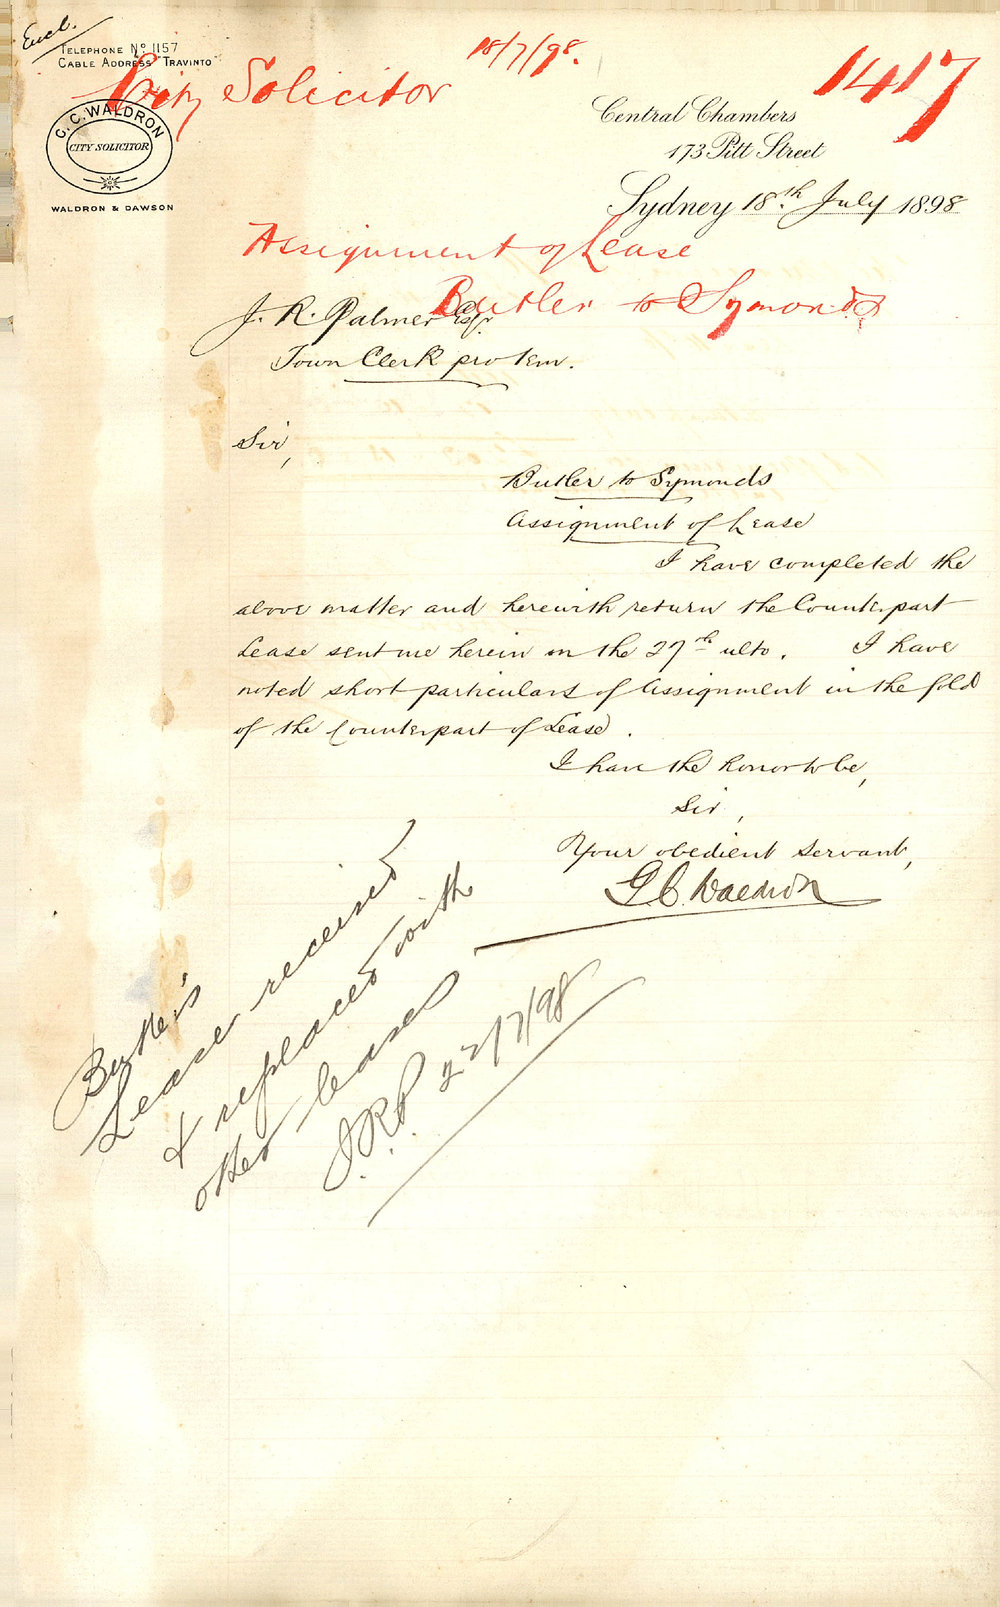 Encl.
TELEPHONE Nº 1157
CABLE ADDRESS "TRAVINTO"
City Solicitor
18/7/98.
1417
C. C. WALDRON
CITY SOLICITOR
WALDRON & DAWSON
Central Chambers
173 Pitt Street
Sydney 18th July 1898
Assignment of Lease
Butler to Symonds
J. R. Palmer Esqr
Town Clerk pro tem.
Sir,
Butler to Symonds
Assignment of Lease
I have completed the
above matter and herewith return the Counterpart
Lease sent me herein on the 27th ulto. I have
noted short particulars of Assignment in the fold
of the Counterpart of Lease.
I have the honor to be,
Sir,
Your obedient servant,
G. C. Waldron
Butler's
Lease received
& replaced with
other leases
J.R.P. 22/7/98